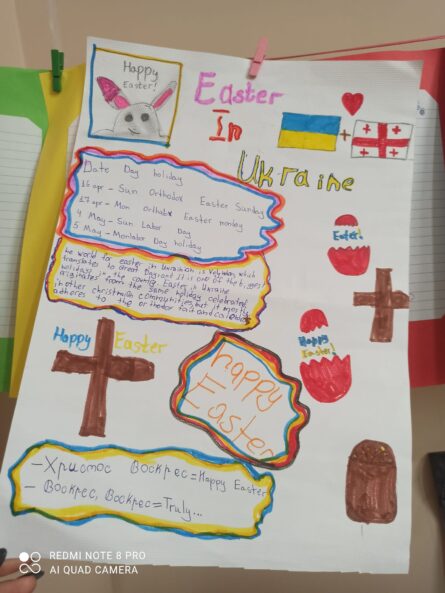 Happy
Easter!
Easter
In
Ukraine
Date Day holiday
16 apr - Sun Orthodox Easter Sunday
17 apr - Mon Orthodox Easter monday
4 May - Sun Labor Day
5 May - Mon Labor Day holiday
he world for easter in Ukrainian is Velykden which
translates to Great Day and it is one of the biggest
holidays in the coming Easter in Ukraine
originates from the same holiday celebrated
in other christmas communities, but it mostly
adheres to the orthodox fait and calendar
Easter!
Happy
Easter!
Happy Easter
happy
Easter
-Христос Воскрес = Happy Easter
- Воскрес, Воскрес = Truly...
REDMI NOTE 8 PRO
AI QUAD CAMERA